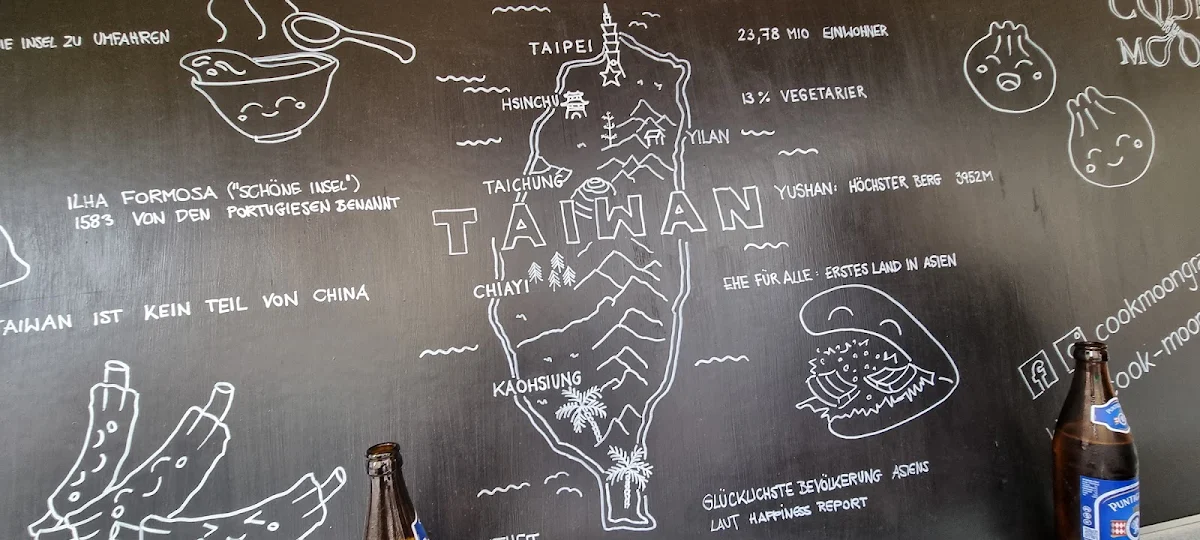 INSEL ZU UMFAHREN
TAIPEI
23,78 MIO EINWOHNER
HSINCHU
13% VEGETARIER
YILAN
TAICHUNG
ILHA FORMOSA ("SCHÖNE INSEL")
1583 VON DEN PORTUGIESEN BENANNT
TAIWAN
YUSHAN: HÖCHSTER BERG 3952M
EHE FÜR ALLE: ERSTES LAND IN ASIEN
CHIAYI
TAIWAN IST KEIN TEIL VON CHINA
KAOHSIUNG
GLÜCKLICHSTE BEVÖLKERUNG ASIENS
LAUT HAPPINESS REPORT
f
cookmoongra
ook-moo
PUNTIG